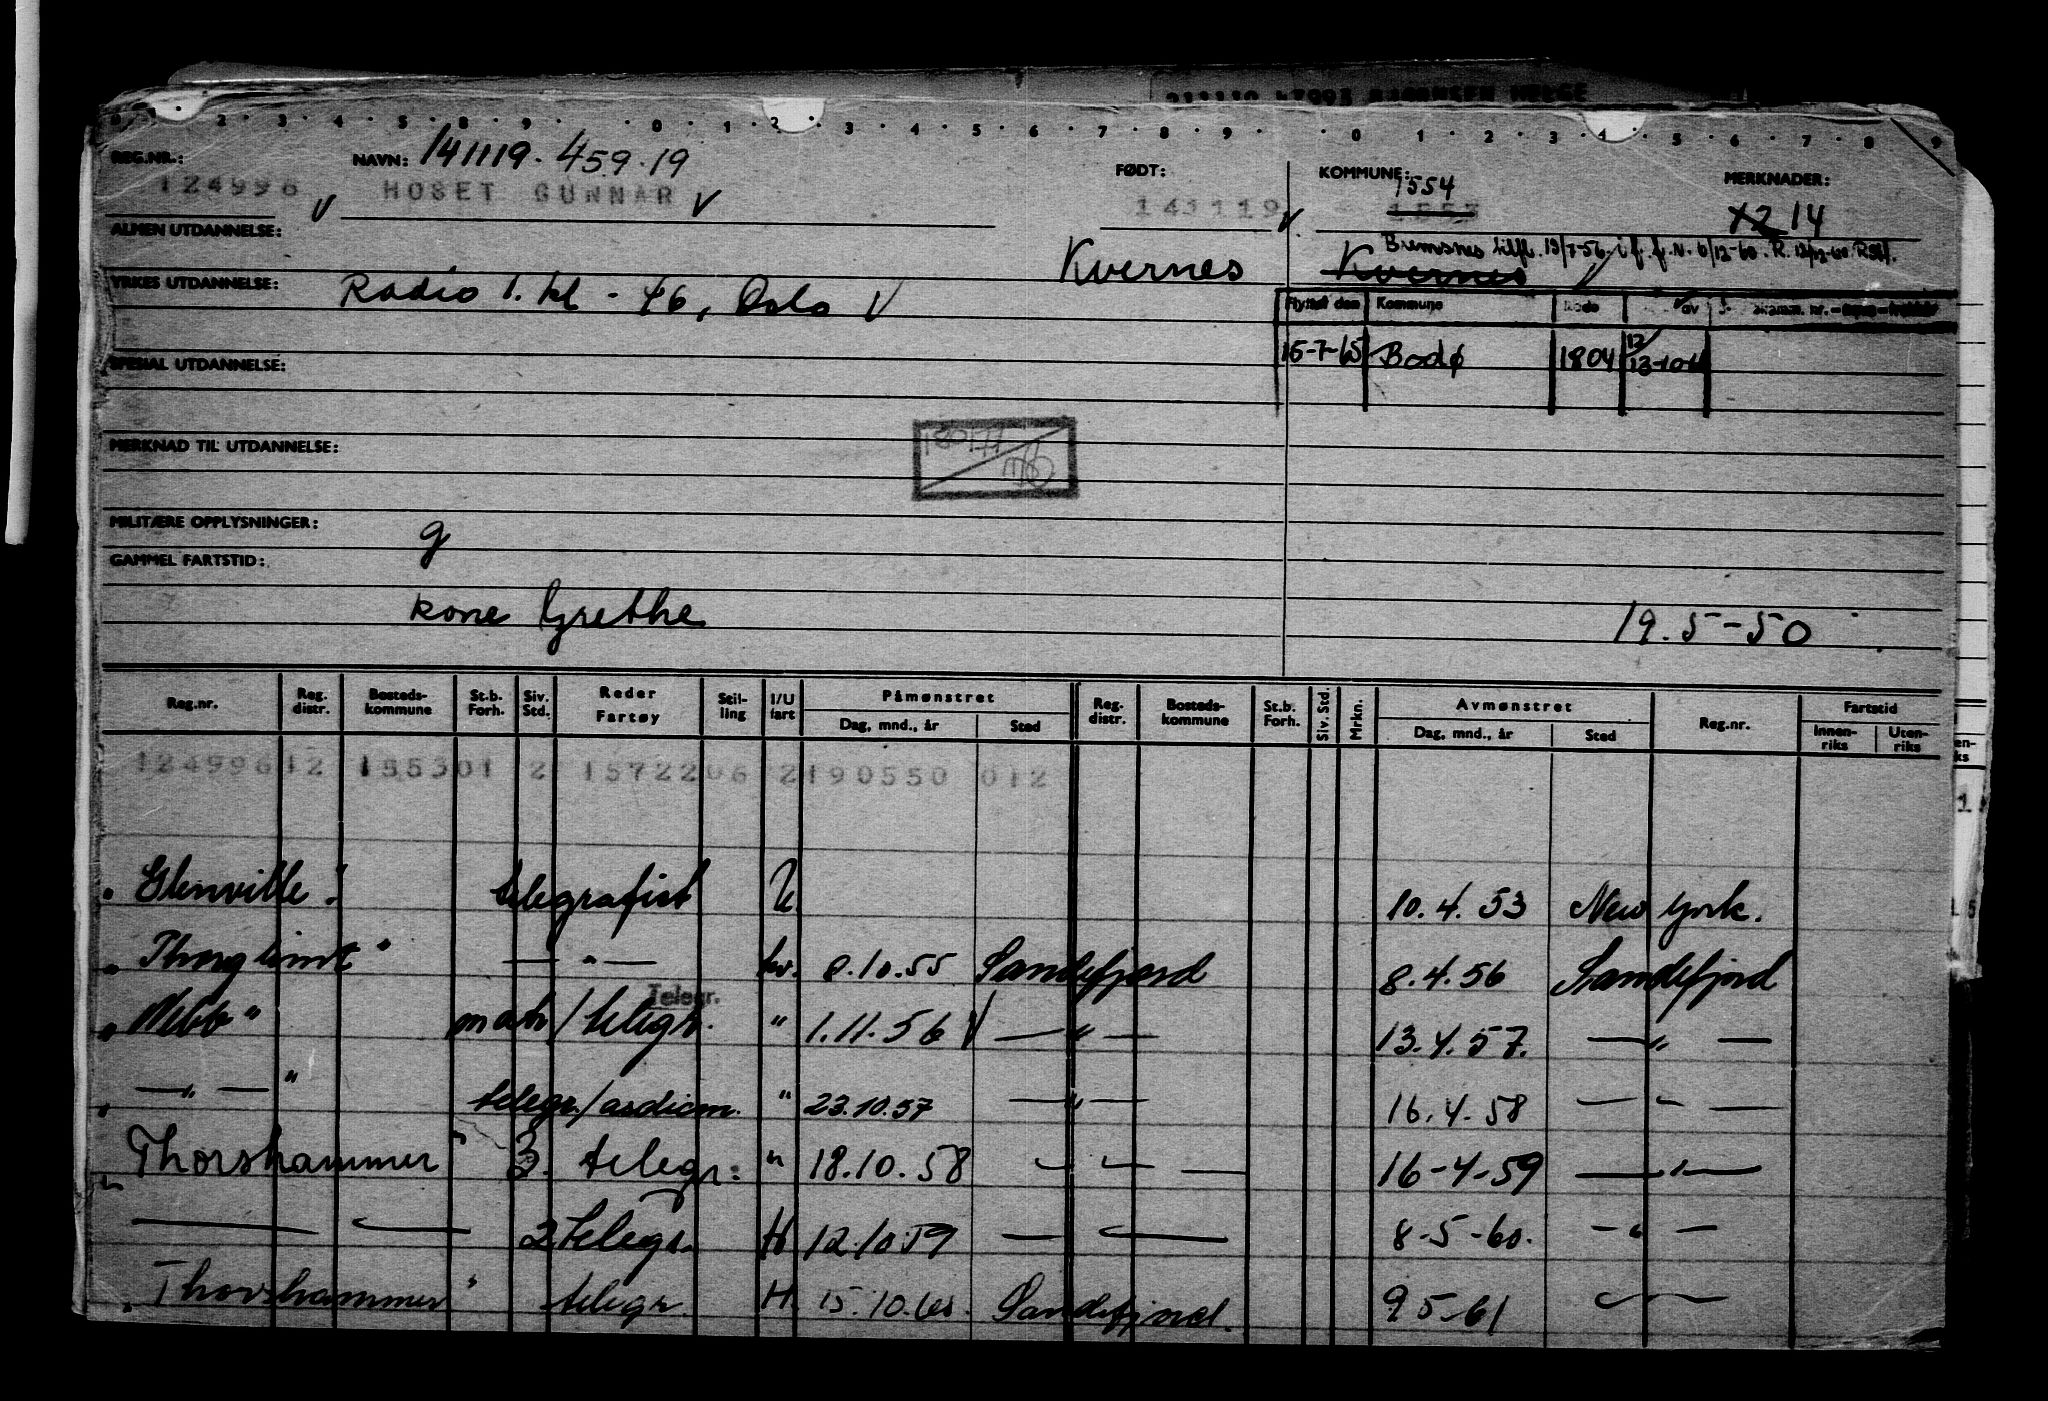 211119 47993 BJØRNSEN HELGE
REG.NR.: NAVN: 141119. 459.19 FØDT: KOMMUNE: 1554 MERKNADER:
124996 V HOSET GUNNAR V 141119 V 1553 X2 14
ALMEN UTDANNELSE: Kvernes Kvernes Bremsnes tilfl. 19/7-56 i f. f. N. 6/12-60. R.
YRKES UTDANNELSE: Radio 1. kl - 46, Oslo V
Flyttet den Kommune Kode av
15-7-65 Bodø 1804
SPESIAL UTDANNELSE:
MERKNAD TIL UTDANNELSE:
MILITÆRE OPPLYSNINGER: g
GAMMEL FARTSTID:
kone Grethe 19.5-50
Reg.nr. Reg. distr. Bosteds-kommune St.b. Forh. Siv. Std. Reder Fartøy Stil-ling I/U fart Påmønstret Dag, mnd., år Sted Reg. distr. Bosteds-kommune St.b. Forh. Siv. Std. Mrkn. Avmønstret Dag, mnd., år Sted Reg.nr. Fartstid Innen-riks Uten-riks
124996 12 1553 01 2 15722 06 2 190550 012
"Glenville" telegrafist U 10.4.53 New York.
"Thorglimt" — " — hv. 8.10.55 Sandefjord 8.4.56 Sandefjord
Telegr.
"Nebb" matr/telegr. " 1.11.56 V — " — 13.4.57. — " —
" — " — " telegr./asdicm. " 23.10.57 — " — 16.4.58 — " —
"Thorshammer" 3. telegr. " 18.10.58 — " — 16-4-59 — " —
— " — 2 telegr. H 12.10.59 — " — 8-5-60. — " —
"Thorshammer" telegr. H 15.10.60. Sandefjord. 9 5-61 — " —